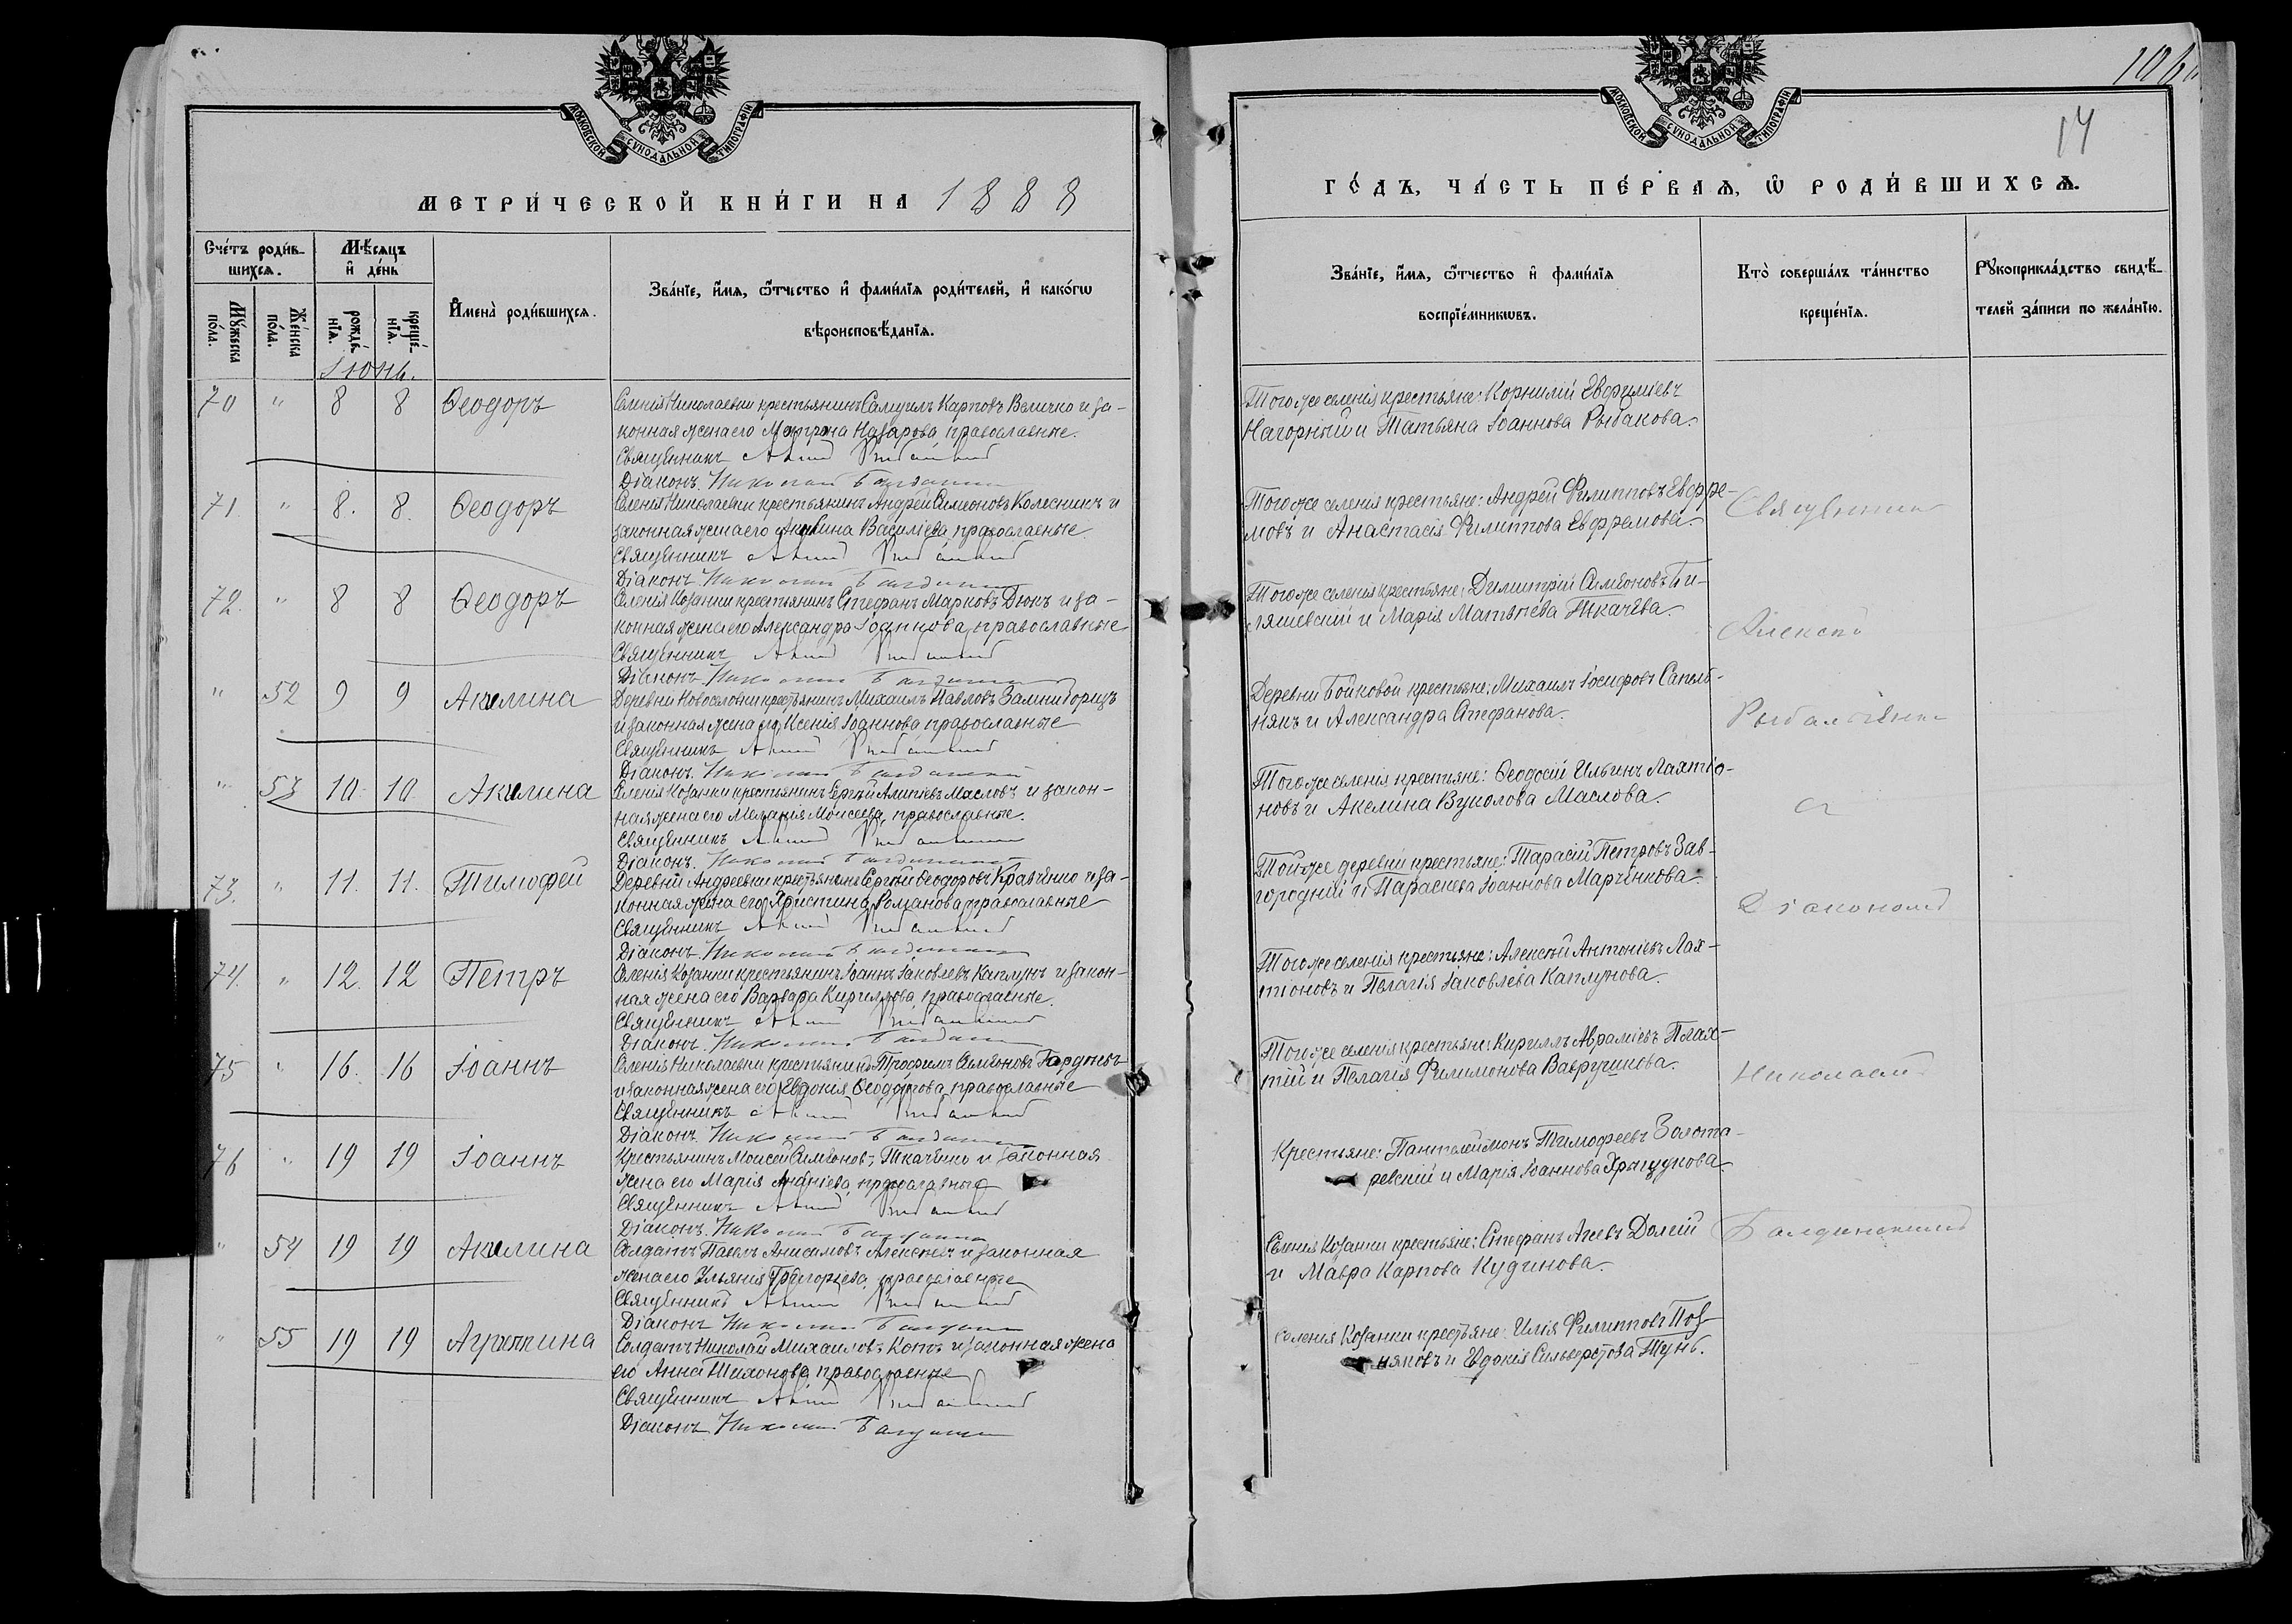 106
14
МОСКОВСКОЙ СѴНОДАЛЬНОЙ ТИПОГРАФІИ
МОСКОВСКОЙ СѴНОДАЛЬНОЙ ТИПОГРАФІИ
МЕТРИ́ЧЕСКОЙ КНИ́ГИ НА 1888
ГО́ДЪ, ЧА́СТЬ ПЕ́РВАѦ, Ѡ҆ РОДИ́ВШИХСѦ.
Сче́тъ роди́в-
шихсѧ.
Мѣ́сѧцъ
и҆ де́нь
Мꙋ́жеска
по́ла.
Же́нска
по́ла.
рожде́-
нїѧ.
креще́-
нїѧ.
И҆мена̀ роди́вшихсѧ.
Зва́нїе, и҆́мѧ, ѻ҆́тчество и҆ фами́лїѧ роди́телей, и҆ како́гѡ
вѣроисповѣ́данїѧ.
Зва́нїе, и҆́мѧ, ѻ҆́тчество и҆ фами́лїѧ
воспрїе́мникѡвъ.
Кто̀ соверша́лъ та́инство
креще́нїѧ.
Рꙋкоприкла́дство свидѣ́-
телей за́писи по жела́нїю.
Іюнь.
70 " 8 8 Ѳеодоръ
Селенія Николаевки крестьянинъ Самуилъ Карповъ Величко и за-
конная жена его Матрона Назарова, православные.
Священникъ
Діаконъ Николай
Того же селенія крестьяне: Корнилій Евфиміевъ
Нагорный и Татьяна Іоаннова Рыбакова.
71. " 8. 8. Ѳеодоръ
Селенія Николаевки крестьянинъ Андрей Симеоновъ Колесникъ и
законная жена его Акилина Василіева, православные
Священникъ
Діаконъ Николай
Того же селенія крестьяне: Андрей Филипповъ Евфре-
мовъ и Анастасія Филиппова Евфремова.
Священникъ
72. " 8 8 Ѳеодоръ
Селенія Козанки крестьянинъ Стефанъ Марковъ Дюкъ и за-
конная жена его Александра Іоаннова, православные
Священникъ
Діаконъ Николай
Того же селенія крестьяне: Димитрій Симеоновъ Би-
ляшевскій и Марія Матвѣева Ткачева.
Алексѣй
" 52 9 9 Акилина
Деревни Новоселовки крестьянинъ Михаилъ Павловъ
и законная жена его Ксенія Іоаннова, православные
Священникъ
Діаконъ Николай
Деревни Бойковой крестьяне: Михаилъ Іосифовъ Сапель-
някъ и Александра Стефанова.
" 53 10 10 Акилина
Селенія Козанки крестьянинъ Сергій Алипіевъ Масловъ и закон-
ная жена его Меланія Моисеева, православные.
Священникъ
Діаконъ Николай
Того же селенія крестьяне: Ѳеодосій Ильинъ Лахтіо-
новъ и Акелина Вуколова Маслова.
съ
73. " 11. 11. Тимофей
Деревни Андреевки крестьянинъ Сергій Ѳеодоровъ Кравченко и за-
конная жена его Христина Романова, православные
Священникъ
Діаконъ Николай
Той же деревни крестьяне: Тарасій Петровъ Зав-
городній и Параскева Іоаннова Марченкова.
Діакономъ
74. " 12. 12 Петръ
Селенія Козанки крестьянинъ Іоаннъ Іаковлевъ Каплунъ и закон-
ная жена его Варвара Кириллова, православные.
Священникъ
Діаконъ Николай
Того же селенія крестьяне: Алексѣй Антоніевъ Лах-
тіоновъ и Пелагія Іаковлева Каплунова.
75 " 16. 16 Іоаннъ
Селенія Николаевки крестьянинъ Трофимъ Симеоновъ
и законная жена его Евдокія Ѳеодорова, православные
Священникъ
Діаконъ Николай
Того же селенія крестьяне: Кириллъ Авраміевъ Плах-
тій и Пелагія Филимонова Ваврушкова.
Николаемъ
76 " 19 19 Іоаннъ
Крестьянинъ Моисей Симеоновъ Ткаченко и законная
жена его Марія, православные
Священникъ
Діаконъ Николай
Крестьяне: Пантелеймонъ Тимофеевъ Золота-
ревскій и Марія Іоаннова Хрыщукова.
" 54 19 19 Акилина
Солдатъ Павелъ Анисимовъ Алексѣевъ и законная
жена его Ульянія Григорьева, православные
Священникъ
Діаконъ Николай
Селенія Козанки крестьяне: Стефанъ Агеевъ Долгій
и Мавра Карпова Кудинова.
" 55 19 19 Агриппина
Солдатъ Николай Михаиловъ Котъ и законная жена
его Анна Тихонова, православные
Священникъ
Діаконъ Николай
Селенія Козанки крестьяне: Илія Филипповъ Поз-
няковъ и Евдокія Сильверстова Тунь.